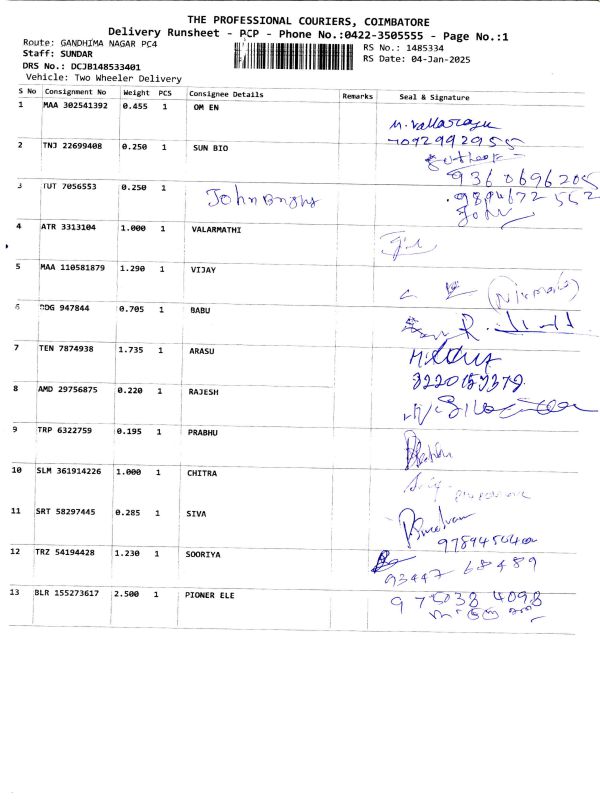 THE PROFESSIONAL COURIERS, COIMBATORE
Delivery Runsheet - PCP - Phone No.:0422-3505555 - Page No.:1
Route: GANDHIMA NAGAR PC4
RS No.: 1485334
Staff: SUNDAR
RS Date: 04-Jan-2025
DRS No.: DCJB148533401
Vehicle: Two Wheeler Delivery
S No Consignment No Weight PCS Consignee Details Remarks Seal & Signature
1 MAA 302541392 0.455 1 OM EN
7092992955
2 TNJ 22699408 0.250 1 SUN BIO
9360696205
3 TUT 7056553 0.250 1
9894672552
John
4 ATR 3313104 1.000 1 VALARMATHI
5 MAA 110581879 1.290 1 VIJAY
(Nirmala)
6 BDG 947844 0.705 1 BABU
7 TEN 7874938 1.735 1 ARASU
8 AMD 29756875 0.220 1 RAJESH
9 TRP 6322759 0.195 1 PRABHU
10 SLM 361914226 1.000 1 CHITRA
11 SRT 58297445 0.285 1 SIVA
12 TRZ 54194428 1.230 1 SOORIYA
93447 68489
13 BLR 155273617 2.500 1 PIONER ELE
975038 4098